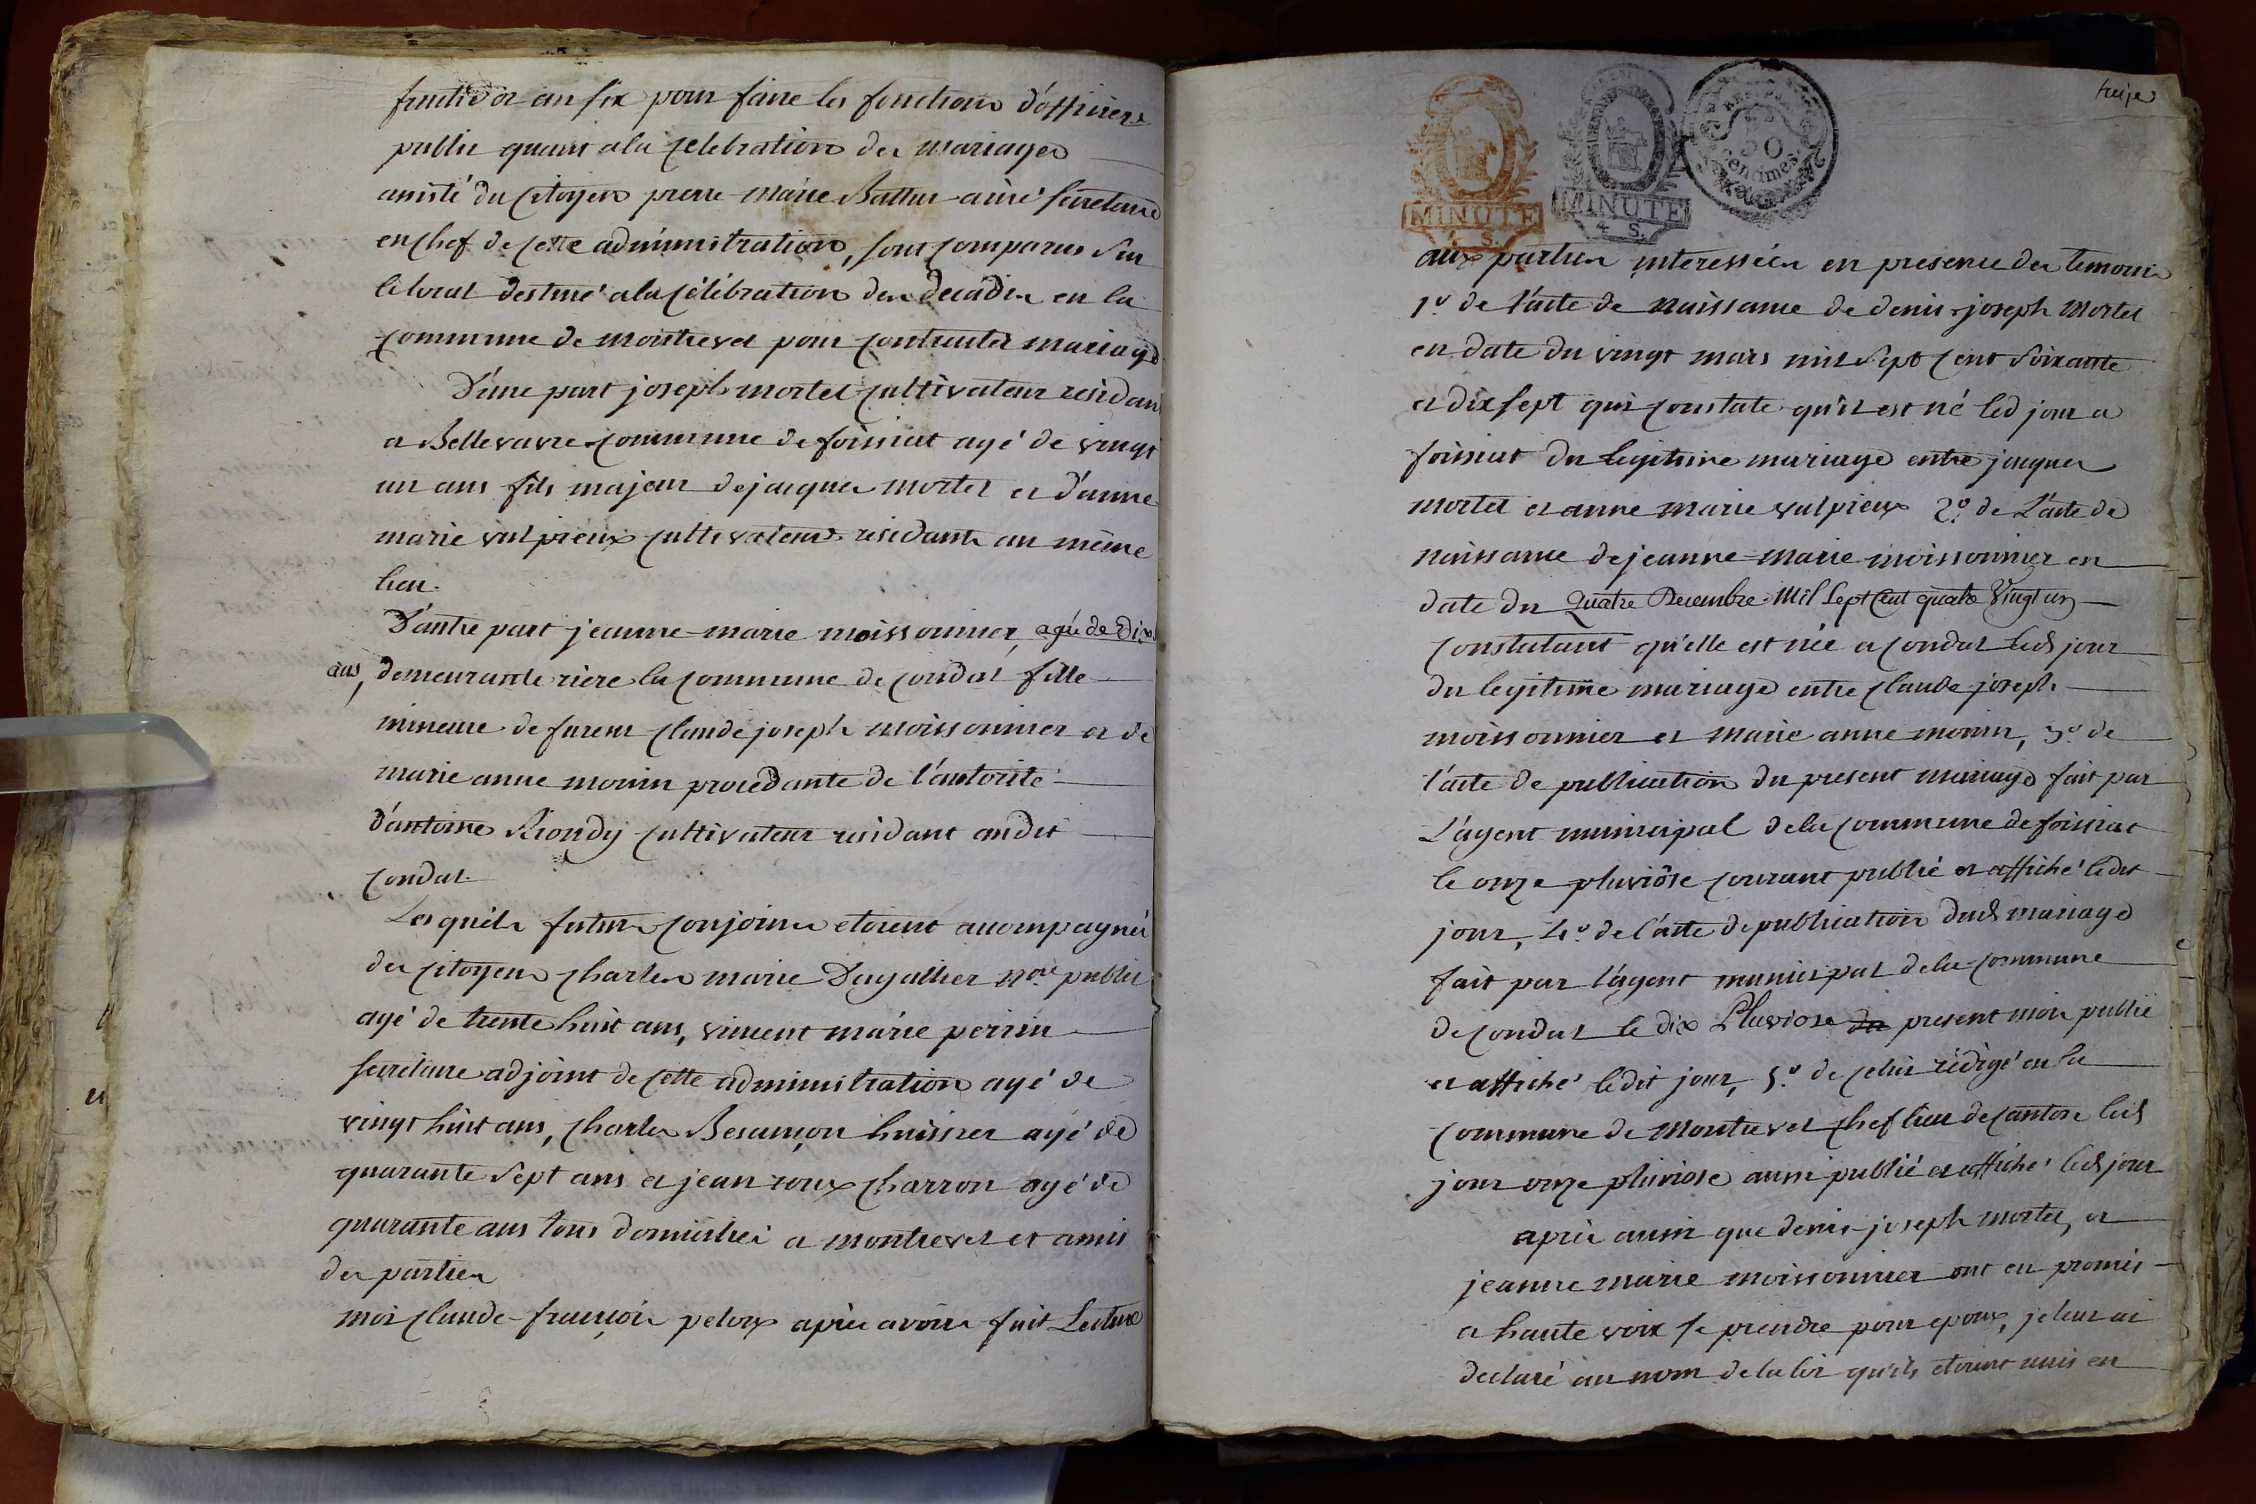 fructidor an six pour faire les fonctions d'officiers
public quant a la celebration des mariages
assisté du citoyen pierre-marie Battur ainé secretaire
en chef de cette administration, sont comparus sur
le local destiné a la célébration des decadis en la
commune de montrevel pour contracter mariage
D'une part joseph mortel cultivateur residant
a Bellevavre commune de foissiat agé de vingt
un ans fils majeur de jacques mortel et d'anne
marie vulpieux cultivateurs residants au même
lieu.
D'autre part jeanne-marie moissonnier, agée de Dix
ans, demeurante riere la commune de condal fille
mineure de fureur claude joseph moissonnier et de
marie anne monin procedante de l'autorité
d'antoine Riondy cultivateur residant audit
condal.
Lesquels futurs conjoints etoient accompagnés
des citoyens charles marie Dagallier nore public
agé de trente huit ans, vincent marie perrin
secretaire adjoint de cette administration agé de
vingt huit ans, charles Besançon huissier agé de
quarante sept ans et jean roux charron agé de
quarante ans tous domiciliés a montrevel et amis
des parties
moi claude-françois peloux après avoir fait Lecture
treize
MINUTE
4. S.
MINUTE
4 S.
50
centimes
aux parties interessées en presence des temoins
1º de l'acte de naissance de denis-joseph mortel
en date du vingt mars mil sept cent soixante
et dix sept qui constate qu'il est né led jour a
foissiat du legitime mariage entre jacques
mortel et anne marie vulpieux 2º. de L'acte de
naissance de jeanne-marie moissonnier en
date du Quatre Decembre Mil Sept Cent quatre Vingt un
constatant qu'elle est née a condal led jour
du legitime mariage entre claude joseph
moissonnier et marie anne monin, 3º. de
l'acte de publication du present mariage fait par
L'agent municipal de la commune de foissiat
le onze pluviôse courant publié et affiché ledit
jour, 4º. de l'acte de publication dud mariage
fait par l'agent municipal de la commune
de condal le dix Pluviose du present mois publié
et affiché ledit jour, 5º. de celui rédigé en la
commune de montrevel chef lieu de canton led
jour onze pluviose aussi publié et affiché led jour
après aussi que denis-joseph mortel, et
jeanne marie moissonnier ont eu promis
a haute voix se prendre pour epoux, je leur ai
declaré au nom de la loi qu'ils etoient unis en